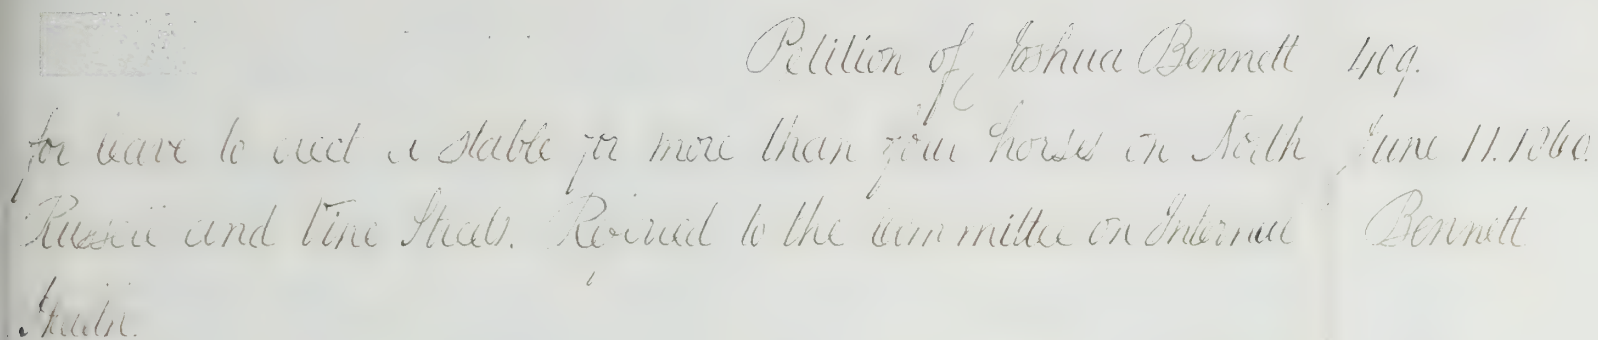 Petition of Joshua Bennett 409.
for leave to erect a stable for more than four horses on North June 11. 1860.
Russell and Vine Streets. Referred to the committee on Internal Bennett
Health.